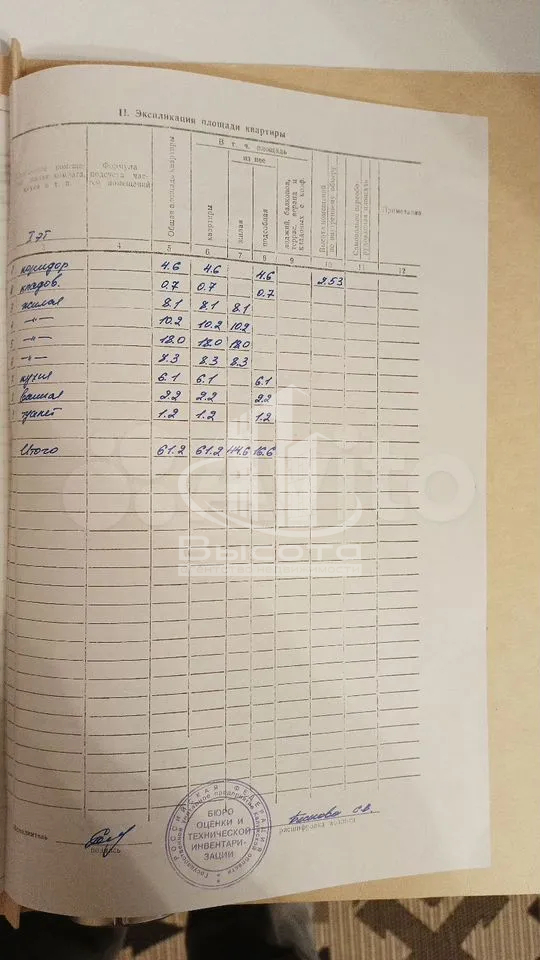 II. Экспликация площади квартиры
Формула подсчета частей помещений
Общая площадь квартиры
В т. ч. площадь
квартиры
из нее
жилая
подсобная
лоджий, балконов, террас, веранд и кладовых с коэф.
Высота помещений по внутреннему обмеру
Примечание
4 5 6 7 8 9 10 11 12
I эт
коридор 4.6 4.6 4.6 2.53
кладов. 0.7 0.7 0.7
жилая 8.1 8.1 8.1
—"— 10.2 10.2 10.2
—"— 18.0 18.0 18.0
—"— 8.3 8.3
кухня 6.1 6.1 6.1
ванная 2.2 2.2 2.2
туалет 1.2 1.2 1.2
Итого 61.2 61.2 44.6 16.6
Высота
РОССИЙСКАЯ ФЕДЕРАЦИЯ
БЮРО
ОЦЕНКИ И
ТЕХНИЧЕСКОЙ
ИНВЕНТАРИ-
ЗАЦИИ
подпись
расшифровка подписи